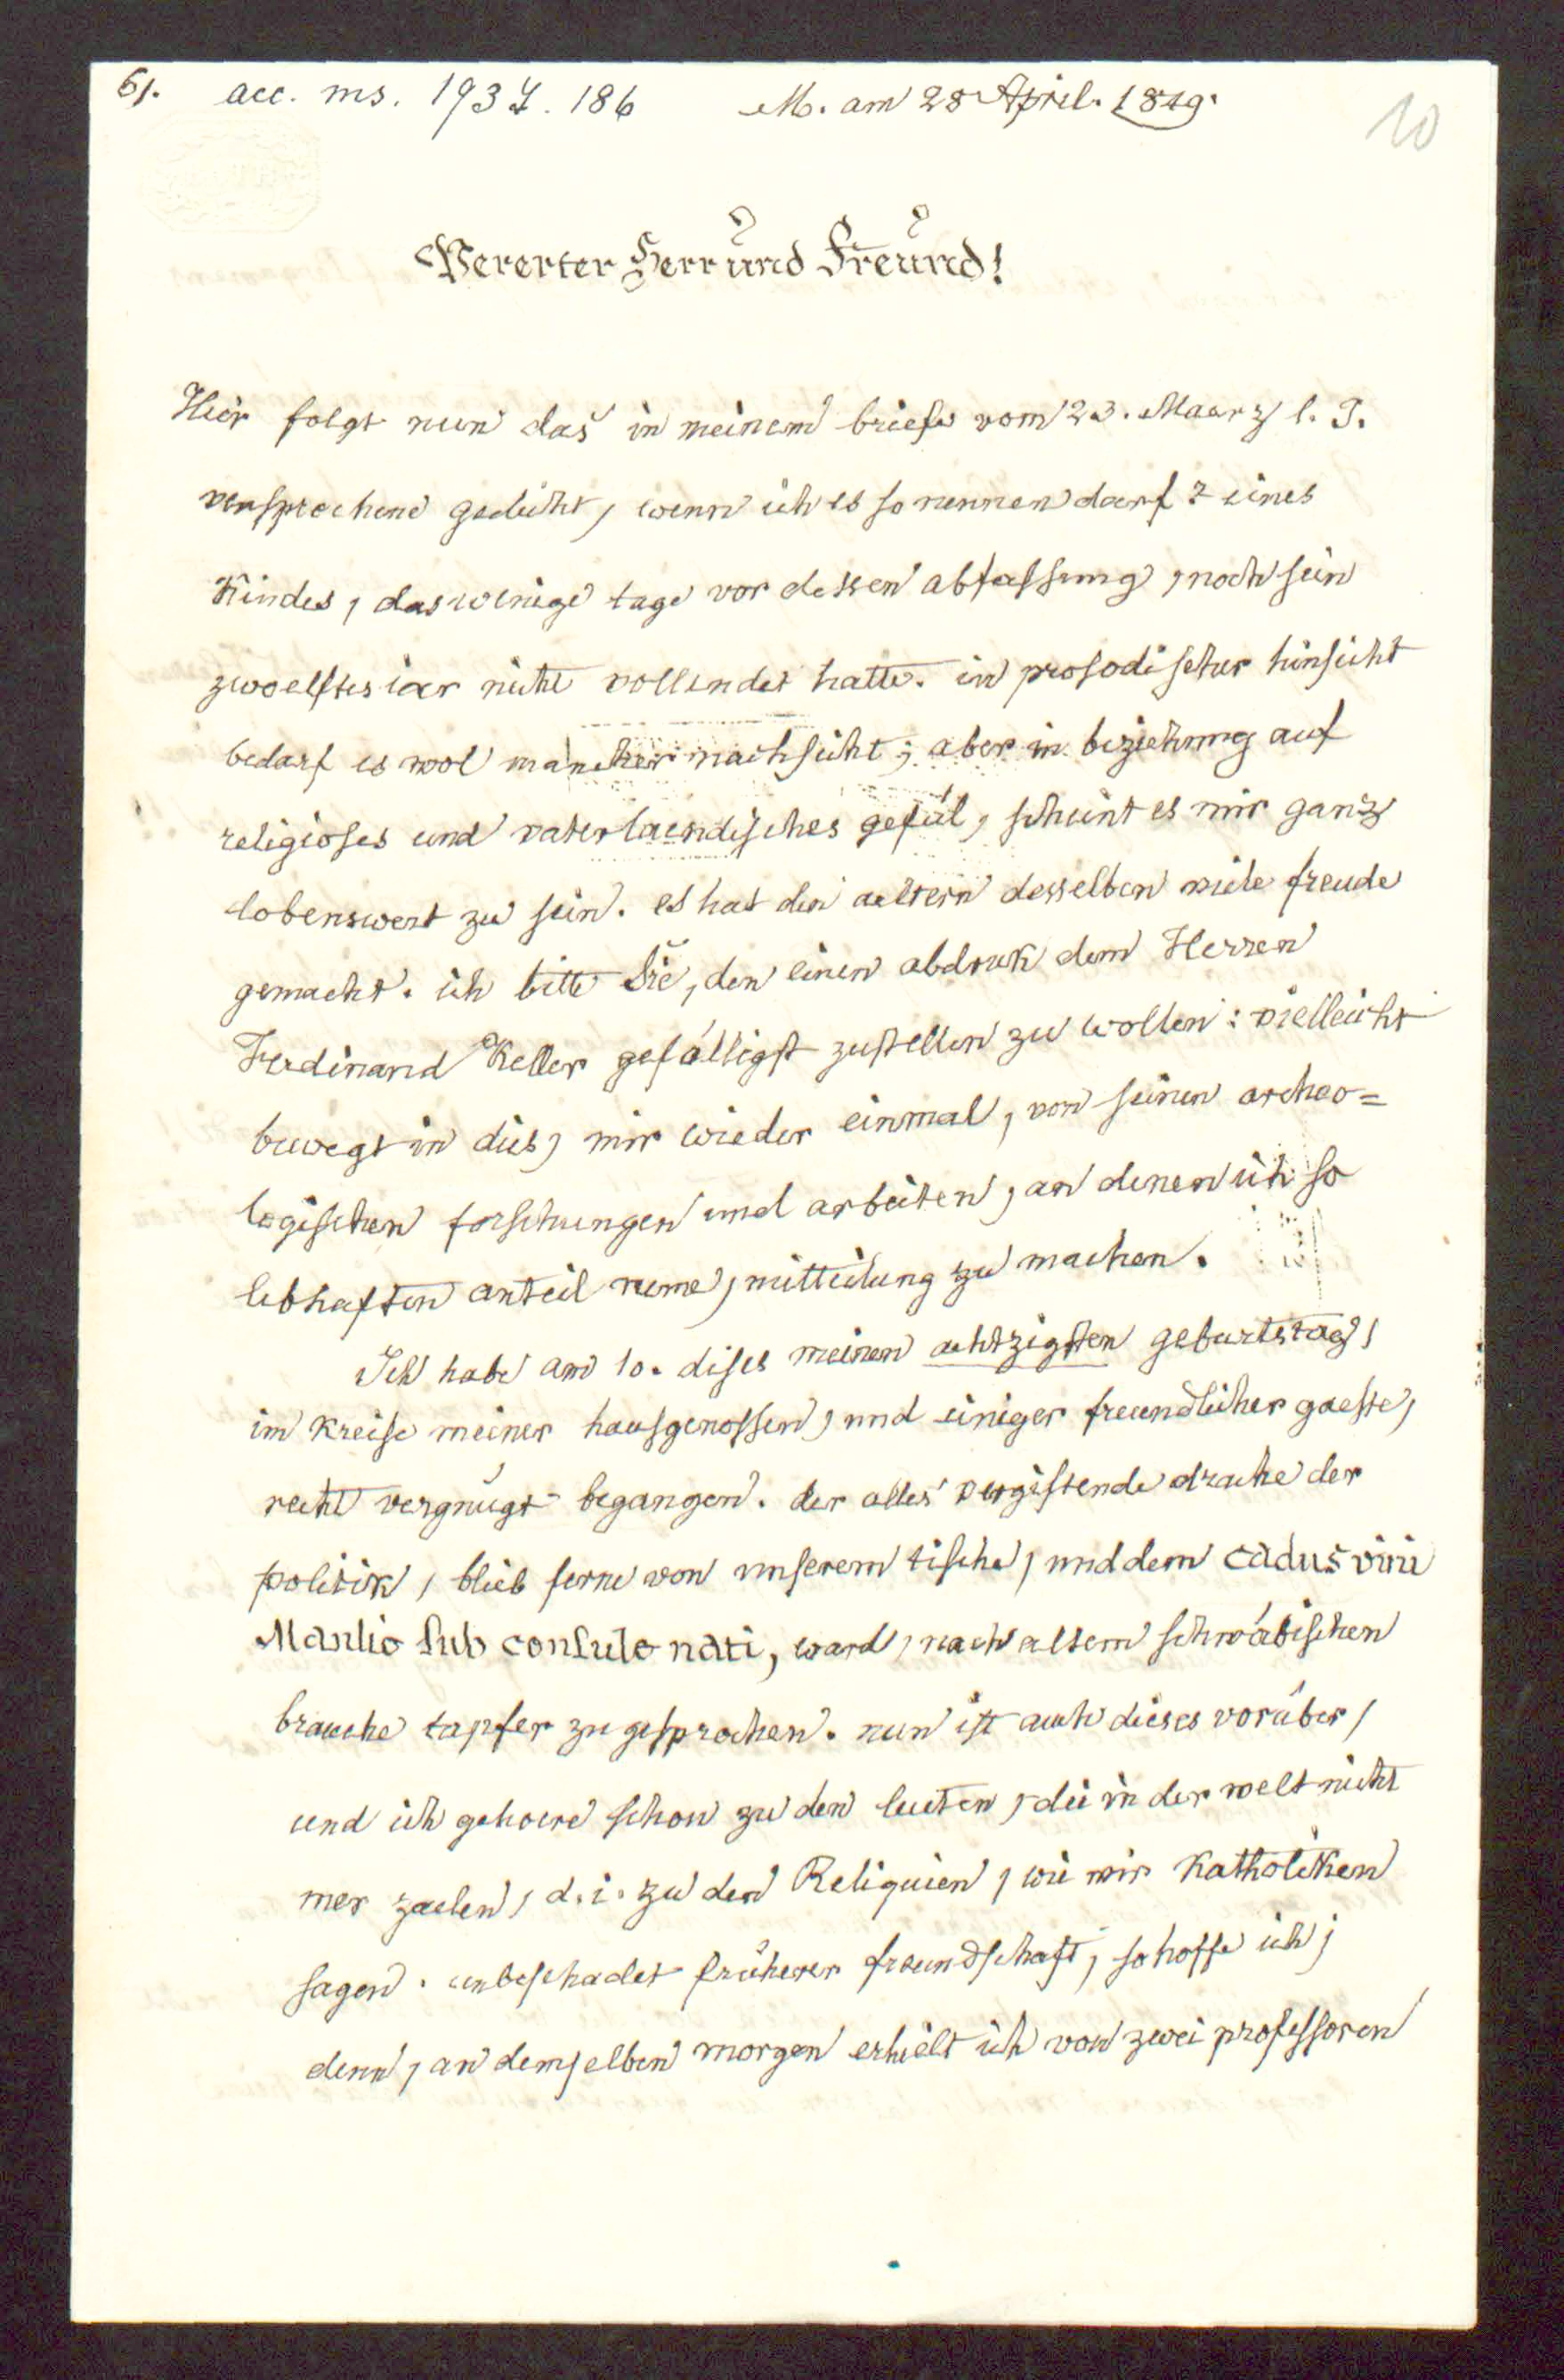 61. acc. ms. 1937. 186 M. am 28 April. 1849.
10
Vererter Herr und Freund!
Hier folgt nun das in meinem briefe vom 23. Maarz l. J.
versprochene gedicht, wenn ich es so nennen darf? eines
Kindes, das wenige tage vor dessen abfassung, noch sein
zwoelftes iar nicht vollendet hatte. in prosodischer hinsicht
bedarf es wol mancher nachsicht; aber in beziehung auf
religioses und vaterlaendisches gefül, scheint es mir ganz
lobenswert zu sein. es hat den aeltern desselben viele freude
gemacht. ich bitte Sie, den einen abdruk dem Herren
Ferdinand Keller gefälligst zustellen zu wollen: vielleicht
bewegt in dies, mir wieder einmal, von seinen archeo=
logischen forschungen und arbeiten, an denen ich so
lebhaften anteil neme, mitteilung zu machen.
Ich habe am 10. dises meinen achtzigsten geburtstag,
im kreise meiner hausgenossen, und einiger freundlicher gaeste,
recht vergnügt begangen. der alles vergiftende drache der
politik, blieb ferne von unserem tische, und dem cadus vini
Manlio sub consule nati, ward, nach altem schwäbischen
brauche tapfer zugesprochen. nun ist auch dieses vorüber,
und ich gehoere schon zu den leuten, die in der welt nicht
mer zaelen, d. i. zu den Reliquien, wie wir Katholiken
sagen. unbeschadet früherer freundschaft, so hoffe ich;
denn, an demselben morgen erhielt ich von zwei professoren